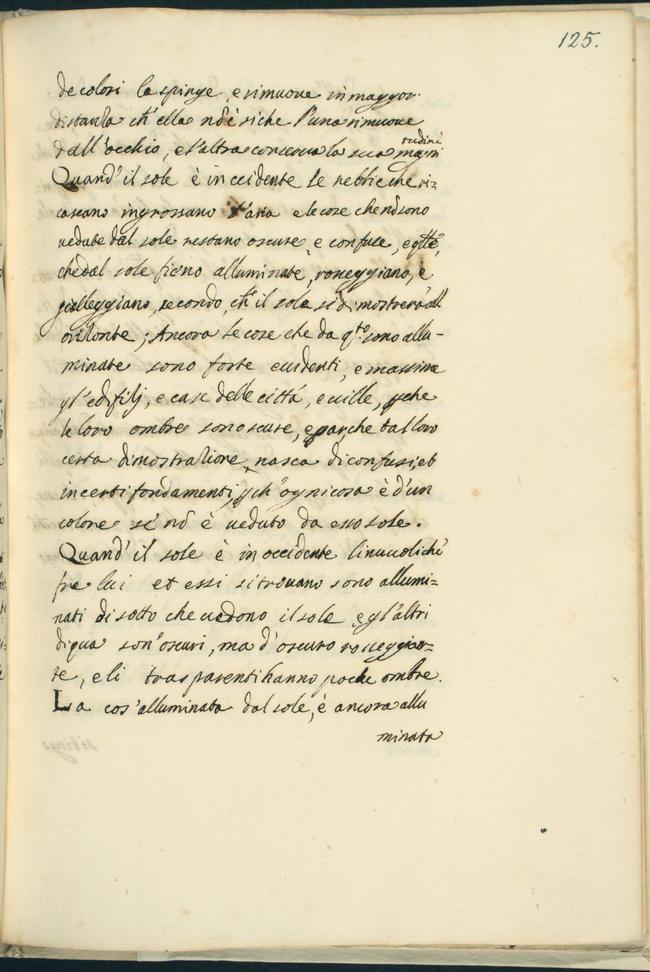 125.
de colori la spinge, e rimuove in maggor
distanza ch'ella nō è siche l'una rimuove
dall'occhio, e l'altra conserva la sua magni
tudini
Quand' il sole è in occidente le nebbie che ri=
cascano ingrossano l'aria e le cose che nō sono
vedute dal sole restano oscure, e confuse, e q̄lle,
che dal sole fieno alluminate, rosseggiano, e
gialleggiano, secondo, ch' il sole si dimostrerà all
orizonte; Ancora le cose che da q.to sono allu-
minate sono forte evidenti, e massime
gl'edifizij, e case delle città, e ville, p̱che
le loro ombre sono scure, e par, che tal loro
certa dimostrazione, nasca di confusi, et
incerti fondamenti, p̱ch' ogni cosa è d'un
colore se nō è veduto da esso sole.
Quand' il sole è in occidente li nuvoli chē
fra lui et essi si trovano sono allumi=
nati di sotto che vedono il sole, e gl'altri
di qua son' oscuri, ma d'oscuro rosseggian=
te, e li trasparenti hanno poche ombre.
La cos' alluminata dal sole, è ancora allu
minata